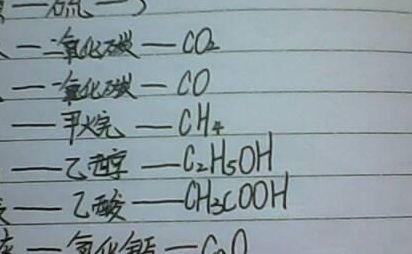 硫 — S
— 二氧化碳 — CO₂
— 一氧化碳 — CO
— 甲烷 — CH₄
— 乙醇 — C₂H₅OH
— 乙酸 — CH₃COOH
— 氧化钙 — CaO